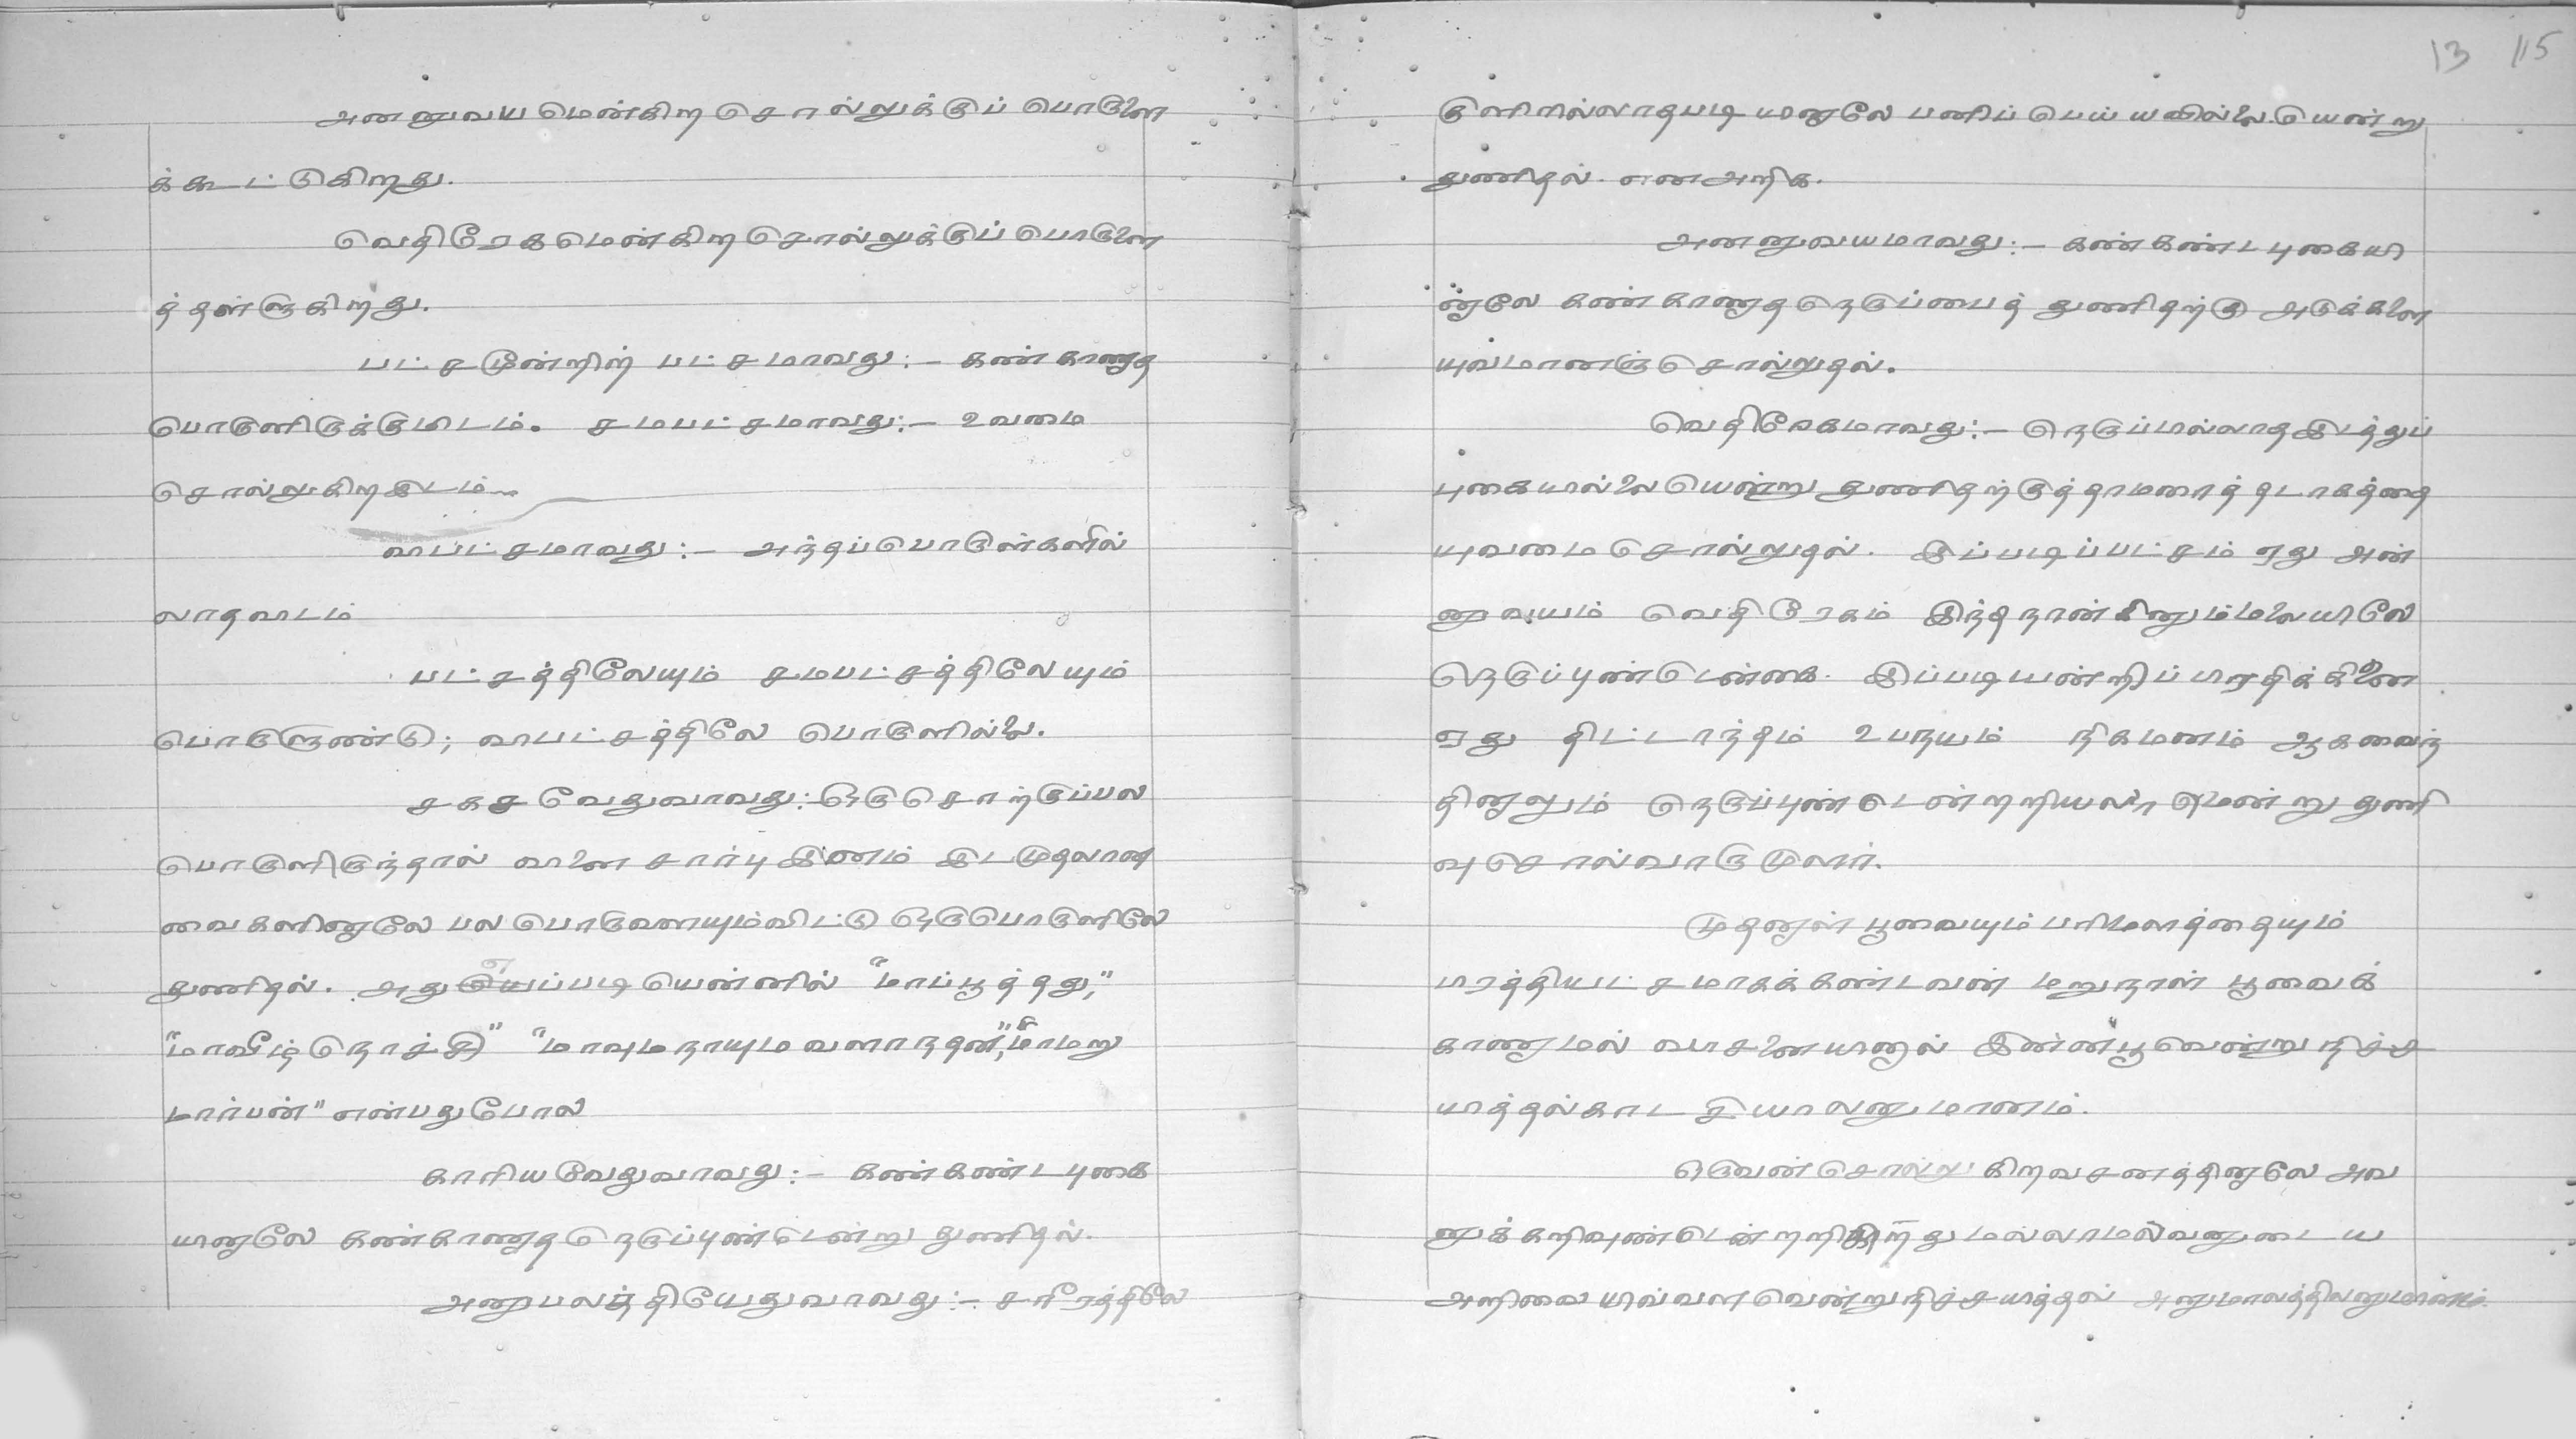 அனனுவயமென்கிற சொல்லுக்குப் பொருளை
க்கூட்டுகிறது.
வெதிரேகமென்கிற சொல்லுக்குப் பொருளை
த்தள்ளுகிறது.
பட்சமூன்றிற் பட்சமாவது:– கண்காணாத
பொருளிருக்குமிடம். சமபட்சமாவது:– உவமை
சொல்லுகிற இடம்
விபட்சமாவது:– அந்தப்பொருள்களில்
லாதவிடம்
பட்சத்திலேயும் சமபட்சத்திலேயும்
பொருளுண்டு; விபட்சத்திலே பொருளில்லை.
சகச வேதுவாவது:– ஒரு சொற்குப்பல
பொருளிருந்தால் வினை சார்பு இனம் இடமுதலான
வைகளினாலே பல பொருளையும்விட்டு ஒருபொருளிலே
துணிதல். அது எப்படியென்னில் "மாப்பூத்தது,"
"மாவீழ்நொச்சி" "மாவுமநாயும வளாநதன", "மாமறு
மார்பன்" என்பதுபோல
காரியவேதுவாவது:– கண்கண்டபுகை
யினாலே கண்காணாத நெருப்புண்டென்று துணிதல்.
அனுபலத்தியேதுவாவது:– சரீரத்திலே
13 115
குளிரில்லாதபடியினாலே பனிப்பெய்யவில்லையென்று
துணிதல். என அறிக.
அனனுவயமாவது:– கண்கண்டபுகையி
னாலே கண்காணாத நெருப்பைத் துணிதற்கு அடுக்களை
யுவமானஞ்சொல்லுதல்.
வெதிரேகமாவது:– நெருப்பில்லாதஇடத்துப்
புகையில்லையென்று துணிதற்குத்தாமரைத்தடாகத்தை
யுவமை சொல்லுதல். இப்படிப்பட்சம் ஏது அன்
னுவயம் வெதிரேகம் இந்தநான்கினும்மலையிலே
நெருப்புண்டென்கை. இப்படியன்றிப் பிரதிக்கினை
ஏது திட்டாந்தம் உபநயம் நிகமனம் ஆகவைந்
தினாலும் நெருப்புண்டென்றறியலாமென்று துணி
வுசொல்வாருமுளர்.
முதனாள் பூவையும் பரிமளத்தையும்
பிரத்தியட்சமாகக்கண்டவன் மறுநாள் பூவைக்
காணாமல் வாசனையினால் இன்னபூவென்று நிச்ச
யித்தல்காட்சியாலனுமானம்.
ஒருவன்சொல்லுகிறவசனத்தினாலே அவ
னுக்கறிவுண்டென்றறிகிறதுமல்லாமலவனுடைய
அறிவை யிவ்வளவென்றுநிச்சயித்தல் அனுமானத்திலனுமானம்.